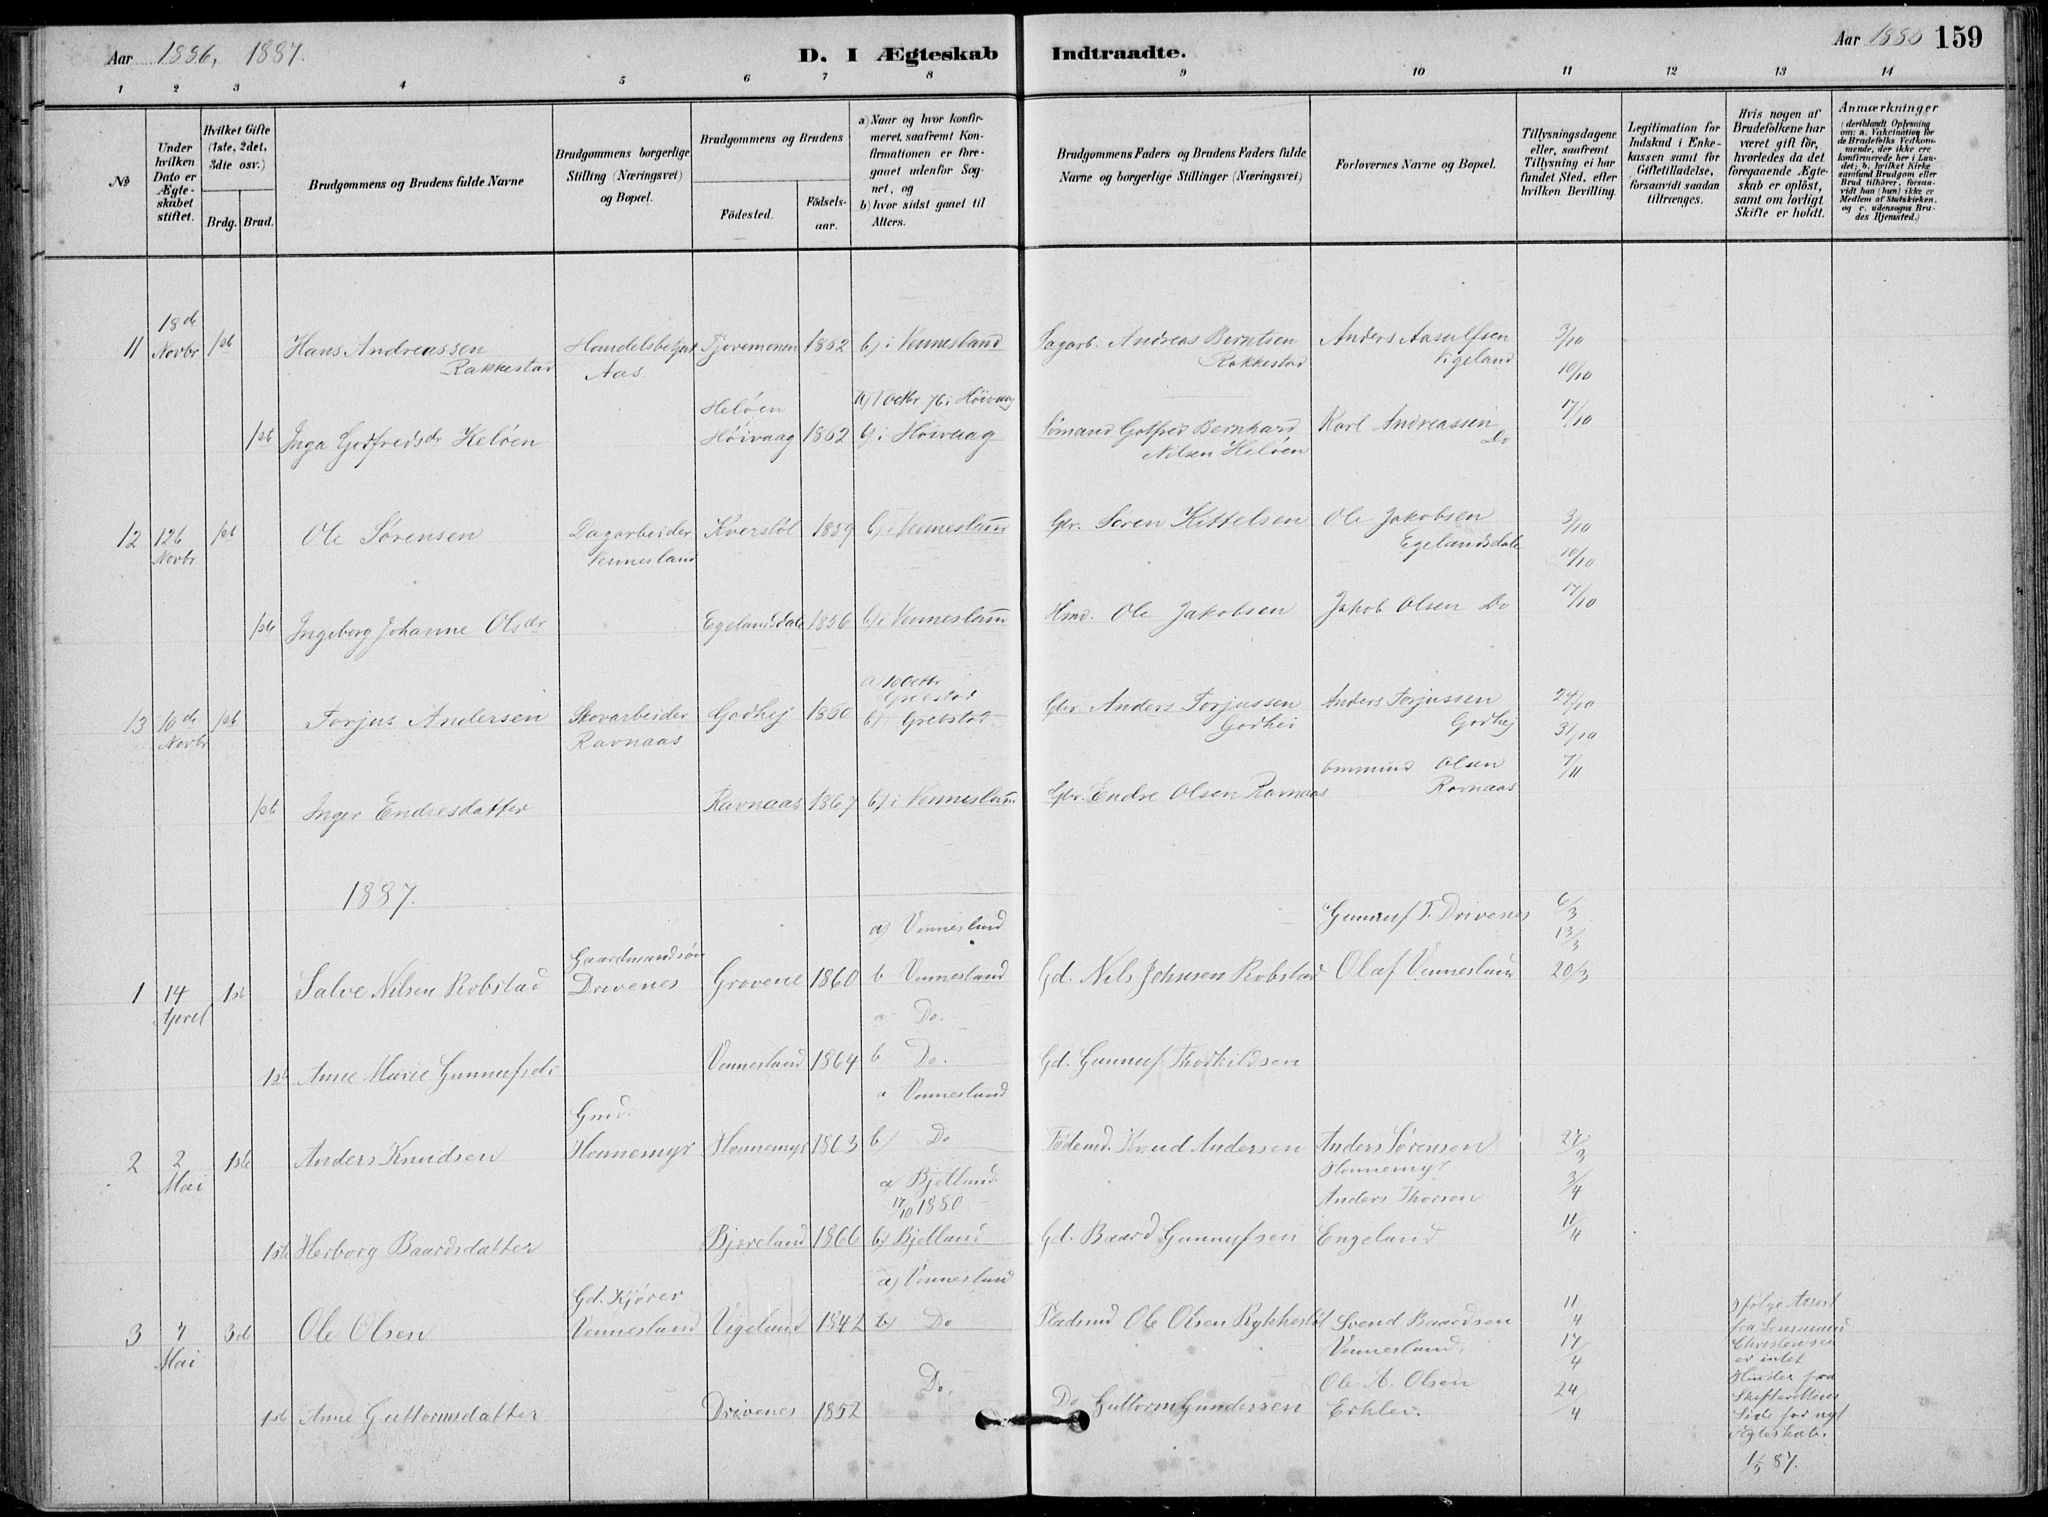 Aar 1886, 1887.
D. I Ægteskab Indtraadte.
Aar 1886 159
1 2 3 4 5 6 7 8 9 10 11 12 13 14
No
Under hvilken Dato er Ægteskabet stiftet.
Hvilket Gifte (1ste, 2det, 3die osv.)
Brdg. Brud.
Brudgommens og Brudens fulde Navne
Brudgommens borgerlige Stilling (Næringsvei) og Bopæl.
Brudgommens og Brudens
Fødested.
Fødselsaar.
a) Naar og hvor konfirmeret, saafremt Konfirmationen er foregaaet udenfor Sognet, og
b) hvor sidst gaaet til Alters.
Brudgommens Faders og Brudens Faders fulde Navne og borgerlige Stillinger (Næringsvei)
Forlovernes Navne og Bopæl.
Tillysningsdagene eller, saafremt Tillysning ei har fundet Sted, efter hvilken Bevilling.
Legitimation for Indskud i Enkekassen samt for Giftetilladelse, forsaavidt saadan tiltrænges.
Hvis nogen af Brudefolkene har været gift før, hvorledes da det foregaaende Ægteskab er opløst, samt om lovligt Skifte er holdt.
Anmærkninger (deriblandt Oplysning om: a. Vakcination for de Brudefolks Vedkommende, der ikke ere konfirmerede her i Landet; b. hvilket Kirkesamfund Brudgom eller Brud tilhører, forsaavidt han (hun) ikke er Medlem af Statskirken. og c. udensogns Brudes Hjemsted.)
11 18de Novbr 1ste Hans Andreassen Rakkestad Handelsbetjent Aas Tjovemonen 1862 b) i Vennesland Sagarb. Andreas Berntsen Rakkestad Anders Aasulfsen Vigeland 3/10 10/10 17/10
1ste Inga Godfredsdr Heløen Heløen Høivaag 1862 a) 1 Octbr 76 i Høivaag b) i Høivaag Sømand Gotfred Bernhard Nilsen Heløen Karl Andreassen Do
12 126 Novbr 1ste Ole Sørensen Dagarbeider Vennesland Kverstøl 1859 b) i Vennesland Gbr. Søren Kittelsen Ole Jakobsen Egelandsdale 3/10 10/10 17/10
1ste Ingeborg Johanne Olsdr Egelandsdale 1856 b) i Vennesland Hmd. Ole Jakobsen Jakob Olsen Do
13 10de Novbr 1ste Torjus Andersen Skovarbeider Ravnaas Godhej 1860 a) 10 Octbr Grebstad b) i Grebstad Gbr. Anders Torjussen Godhei Anders Torjussen Godhej 24/10 31/10 7/11
1ste Inger Endresdatter Ravnaas 1867 b) i Vennesland Gbr. Endre Olsen Ravnaas Ommund Olsen Ravnaas
1887.
1 14 April 1ste Salve Nilsen Robstad Gaardmandsøn Drivenes Grovene 1860 a) Vennesland b Vennesland Gd. Nils Johnsen Robstad Gunnuf T. Drivenes Olaf Vennesland 6/3 13/3 20/3
1ste Anne Marie Gunnufsdr Vennesland 1864 a Do. b Do. Gd. Gunnuf Thorkildsen
2 2 Mai 1ste Anders Knudsen Gmd. Honnemyr Honnemyr 1863 a Vennesland b) Do Fødemd. Knud Andersen Anders Sørensen Honnemyr 27/3 3/4 11/4
1ste Herborg Baardsdatter Bjoreland 1866 a Bjelland 17/10 1880 b) Bjelland Gd. Baard Gunnufsen Anders Thorsen Engeland
3 7 Mai 3die Ole Olsen Gd. Kjører Vennesland Vigeland 1842 a) Vennesland b) Do Pladsmd Ole Olsen Rykkestøl Svend Baardsen Vennesland. 11/4 17/4 24/4 Ifølge Attest fra Lensmand Christensen er intet Hinder fra Skifterettens Side for nyt Ægteskab. 1/5 87.
1ste Anne Guttormsdatter Drivenes 1852 Do. Do Guttorm Gundersen Ole A. Olsen